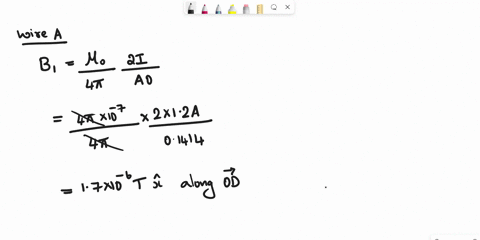 Wire A
B₁ = μ₀/4π 2I/AO
= 4π×10⁻⁷/4π × 2×1.2A/0.1414
= 1.7×10⁻⁶ T x̂ along OD⃗